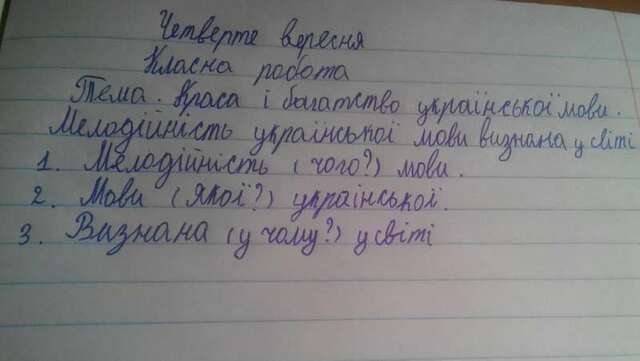 Четверте вересня
Класна робота
Тема. Краса і багатство української мови.
Мелодійність української мови визнана у світі
1. Мелодійність (чого?) мови.
2. Мови (якої?) української.
3. Визнана (у чому?) у світі